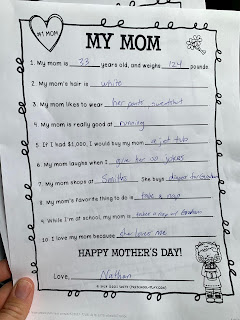 MY MOM
MY MOM
1. My mom is 33 years old, and weighs 124 pounds.
2. My mom's hair is white
3. My mom likes to wear her pants sweatshirt
4. My mom is really good at running
5. If I had $1,000, I would buy my mom a jet tub
6. My mom laughs when I give her jokes
7. My mom shops at Smiths She buys diapers for Graham
8. My mom's favorite thing to do is take a nap
9. While I'm at school, my mom is Graham
10. I love my mom because she loves me
HAPPY MOTHER'S DAY!
Love, Nathan